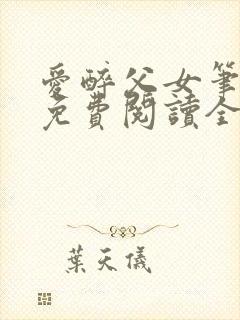 愛醉父女筆
免費閱讀全
葉天儀